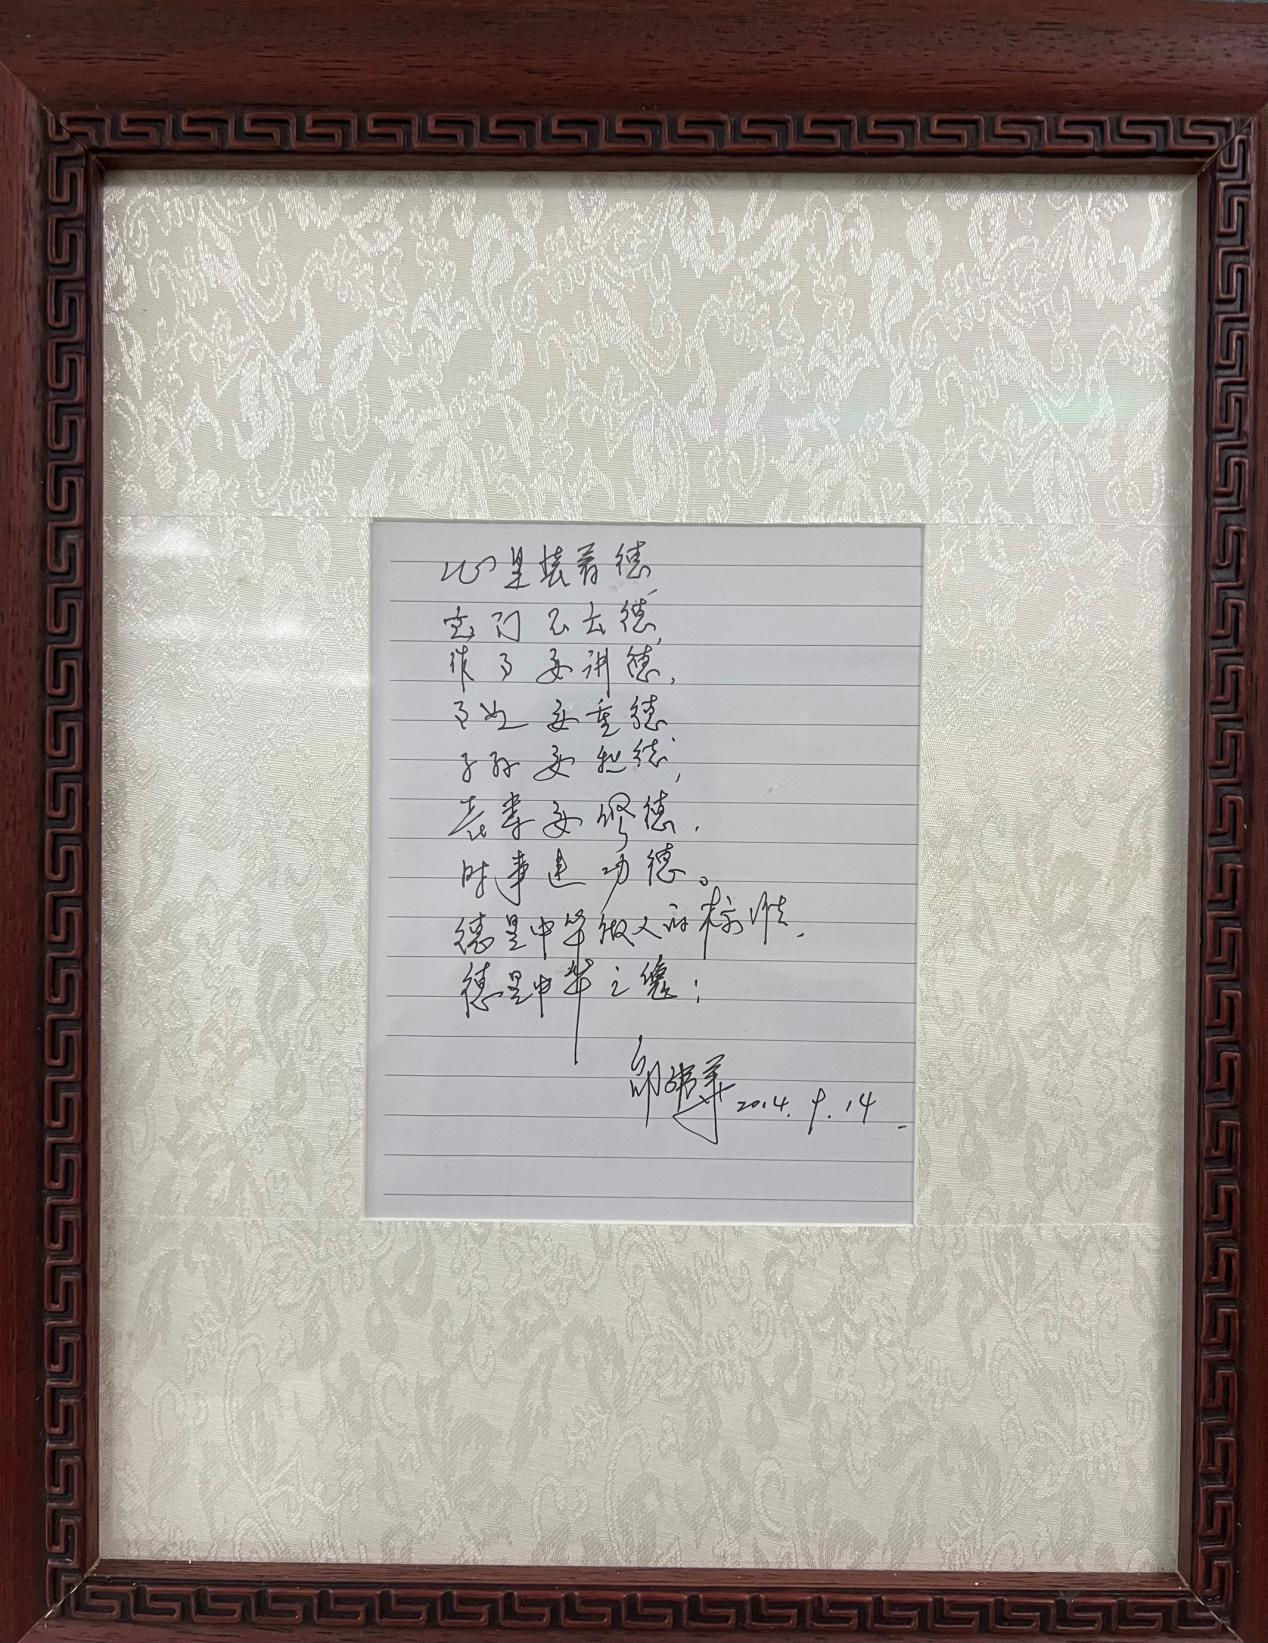 心里装着德,
出门不去德,
作事要讲德,
事业要重德
子孙要想德,
老辈要修德.
时事建功德。
德是中华做人的标准.
德是中华之魂;
2014.9.14